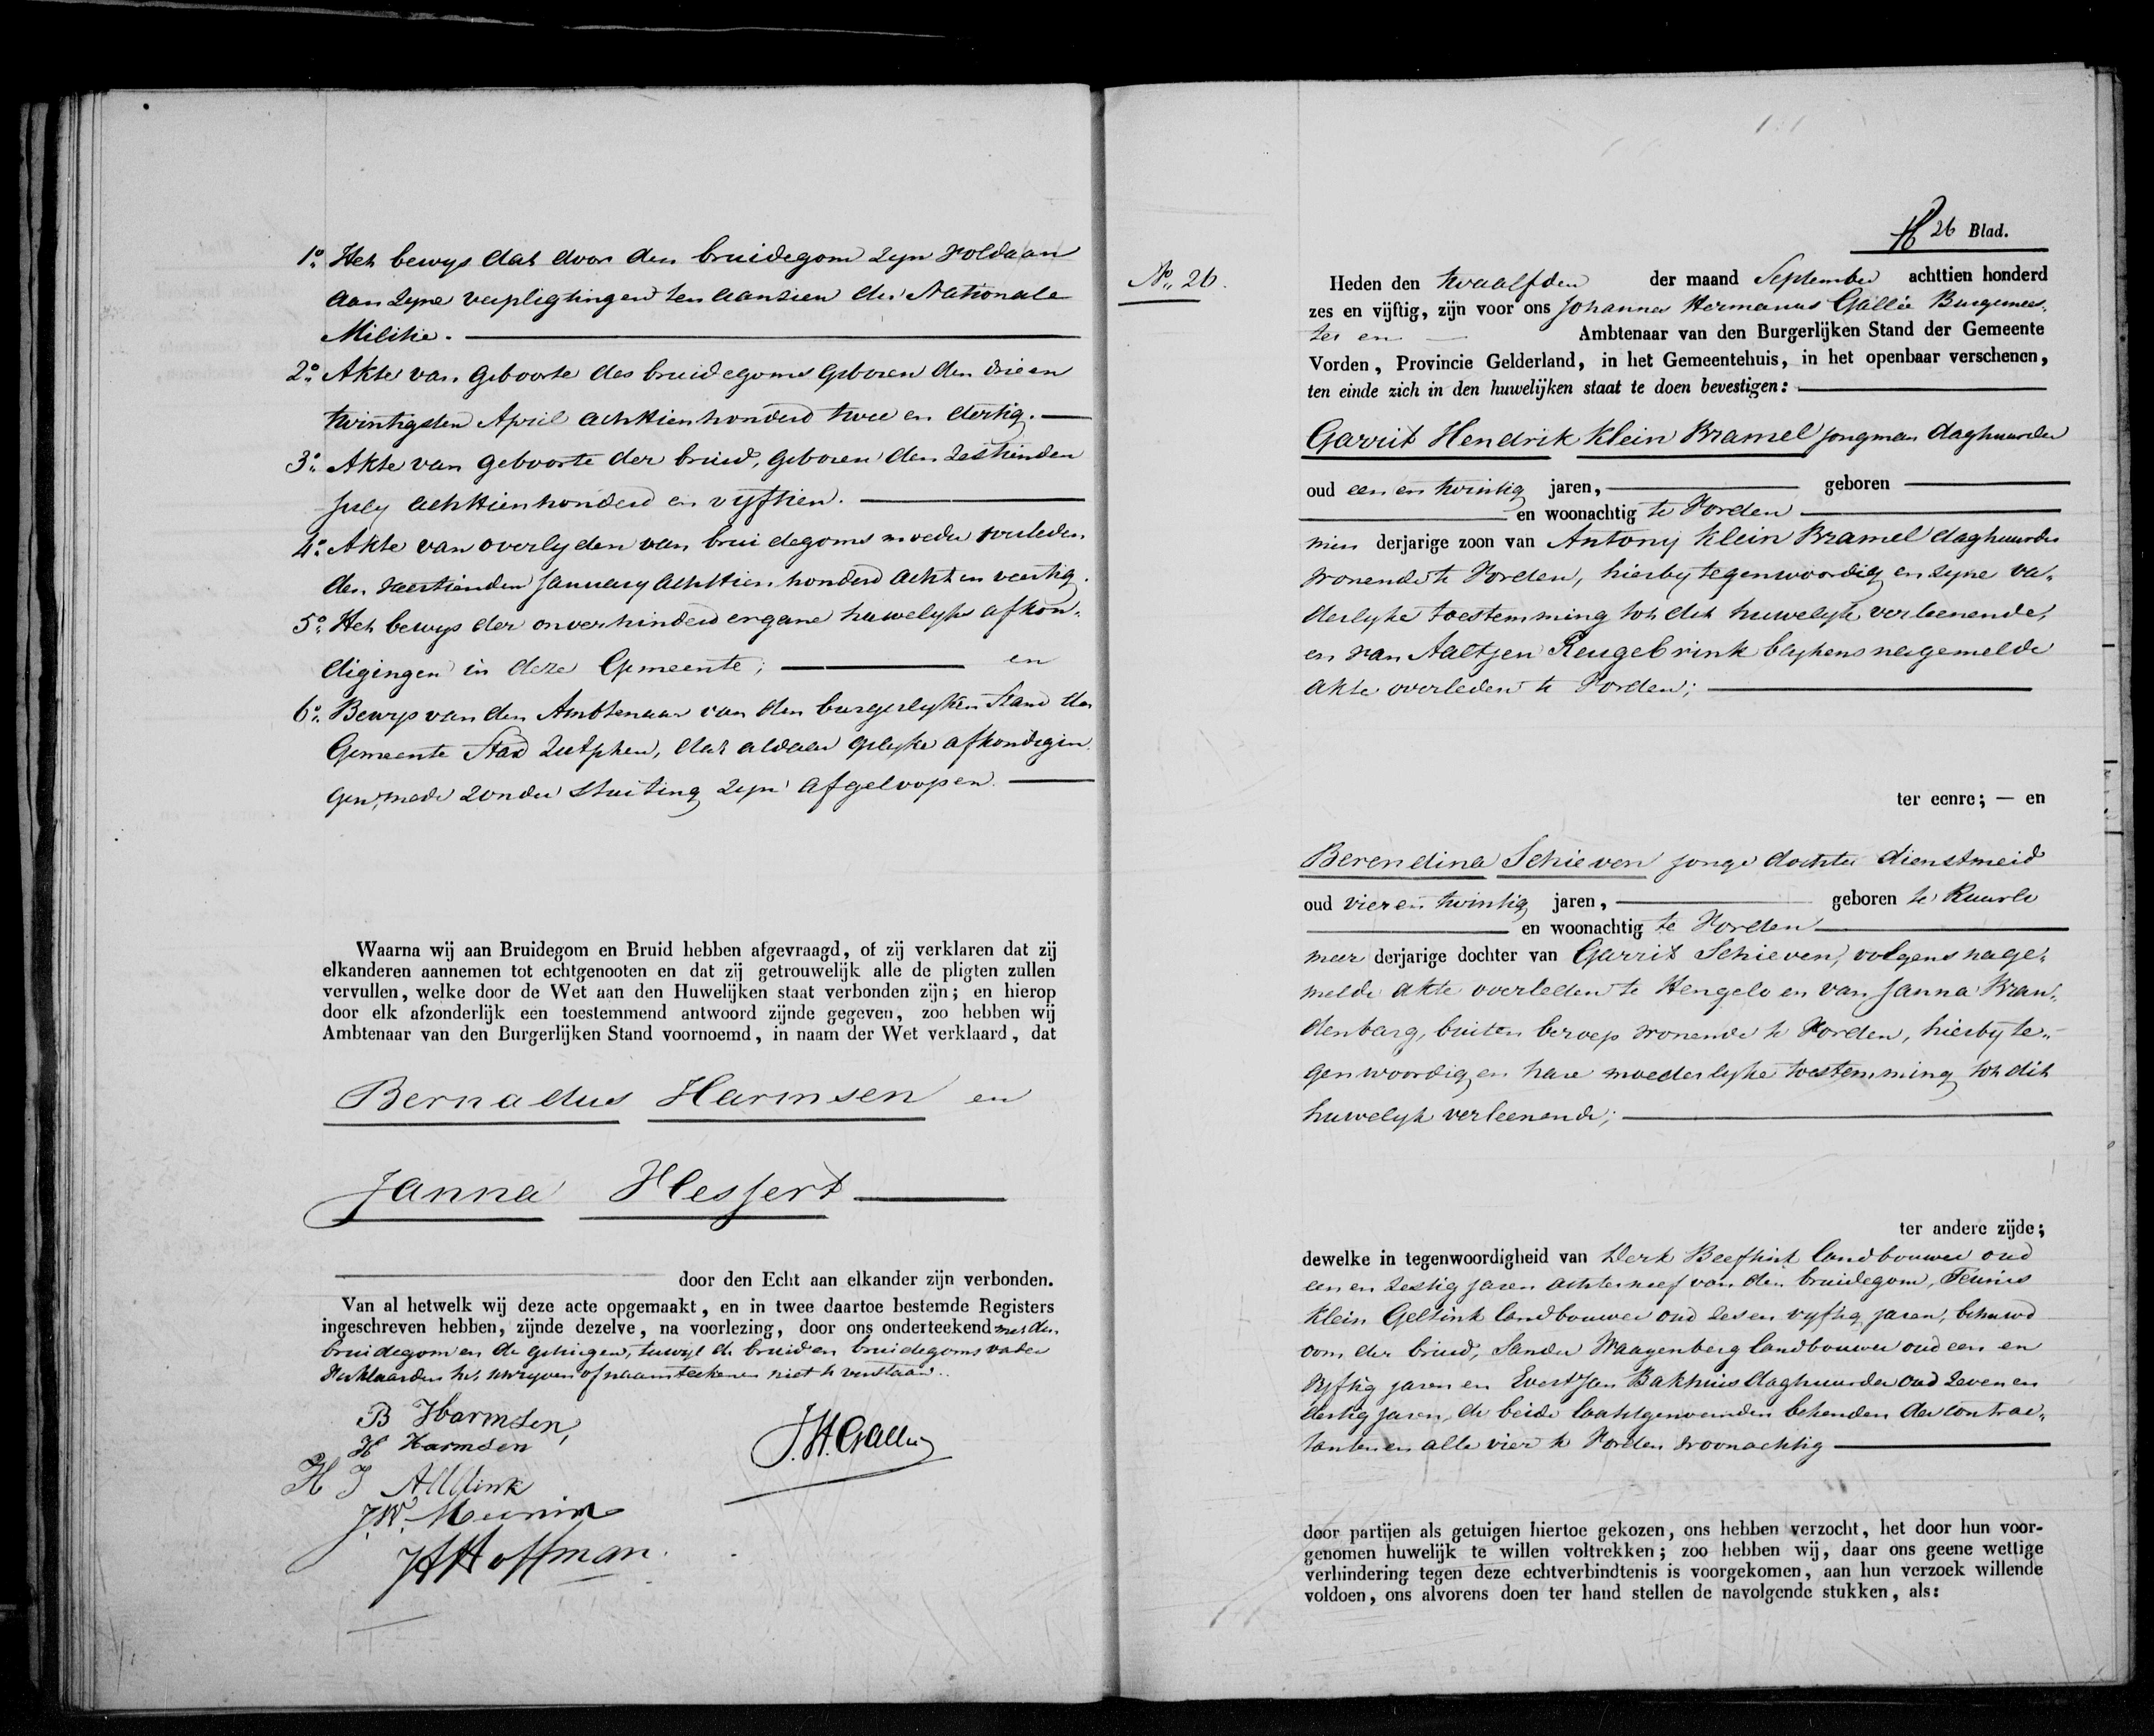 1º. Het bewys dat door den bruidegom zyn voldaan
aan zyne verpligtingen ten aanzien der Nationale
Militie.
2º. Akte van geboorte des bruidegoms geboren den drieen
twintigsten April achttienhonderd twee en dertig.
3º. Akte van geboorte der bruid, geboren den zestienden
July achttienhonderd en vyftien.
4º. Akte van overlyden van bruidegoms moeder overleden
den veertienden January achttien honderd acht en veertig.
5º. Het bewys der onverhinderd ergane huwelyks afkon„
digingen in deze Gemeente; en
6º. Bewys van den Ambtenaar van den burgerlyken Stand der
Gemeente Stad Zutphen, dat aldaar gelyke afkondigin„
gen, mede zonder stuiting zyn afgeloopen.
Waarna wij aan Bruidegom en Bruid hebben afgevraagd, of zij verklaren dat zij
elkanderen aannemen tot echtgenooten en dat zij getrouwelijk alle de pligten zullen
vervullen, welke door de Wet aan den Huwelijken staat verbonden zijn; en hierop
door elk afzonderlijk een toestemmend antwoord zijnde gegeven, zoo hebben wij
Ambtenaar van den Burgerlijken Stand voornoemd, in naam der Wet verklaard, dat
Bernadus Harmsen en
Janna Hessert
door den Echt aan elkander zijn verbonden.
Van al hetwelk wij deze acte opgemaakt, en in twee daartoe bestemde Registers
ingeschreven hebben, zijnde dezelve, na voorlezing, door ons onderteekend met den
bruidegom en de getuigen, terwyl de bruid en bruidegoms vader
verklaarden het schryven of naamteekenen niet te verstaan.
B Harmsen,
H Harmsen
H J Alldink
J.W.
HHoffman.
J.H. Gallée
Nº. 26.
26 Blad.
Heden den twaalfden der maand September achttien honderd
zes en vijftig, zijn voor ons Johannes Hermanus Gallée Burgemees„
ter en Ambtenaar van den Burgerlijken Stand der Gemeente
Vorden, Provincie Gelderland, in het Gemeentehuis, in het openbaar verschenen,
ten einde zich in den huwelijken staat te doen bevestigen:
Garrit Hendrik Klein Bramel jongman daghuurder
oud een en twintig jaren, geboren
en woonachtig te Vorden
min derjarige zoon van Antony Klein Bramel daghuurder
wonende te Vorden, hierby tegenwoordig en zyne va„
derlyke toestemming tot dit huwelyk verleenende,
en van Aaltjen Reugebrink blykens nagemelde
akte overleden te Vorden;
ter eenre; — en
Berendina Schieven jonge dochter dienstmeid
oud vier en twintig jaren, geboren te Ruurlo
en woonachtig te Vorden
meer derjarige dochter van Garrit Schieven, volgens nage„
melde akte overleden te Hengelo en van Janna Bran„
denbarg, buiten beroep wonende te Vorden, hierby te„
genwoordig en hare moederlyke toestemming tot dit
huwelyk verleenende;
ter andere zijde;
dewelke in tegenwoordigheid van Derk Beeftink landbouwer oud
een en zestig jaren achterneef van den bruidegom, Teunis
Klein Geltink landbouwer oud zes en vyftig jaren, behuwd
oom der bruid, Sander Waagenberg landbouwer oud een en
vyftig jaren en Evert Jan Bakhuis daghuurder oud zeven en
dertig jaren, de beide laatstgenoemden bekenden der contrac„
tanten en alle vier te Vorden woonachtig
door partijen als getuigen hiertoe gekozen, ons hebben verzocht, het door hun voor-
genomen huwelijk te willen voltrekken; zoo hebben wij, daar ons geene wettige
verhindering tegen deze echtverbindtenis is voorgekomen, aan hun verzoek willende
voldoen, ons alvorens doen ter hand stellen de navolgende stukken, als: